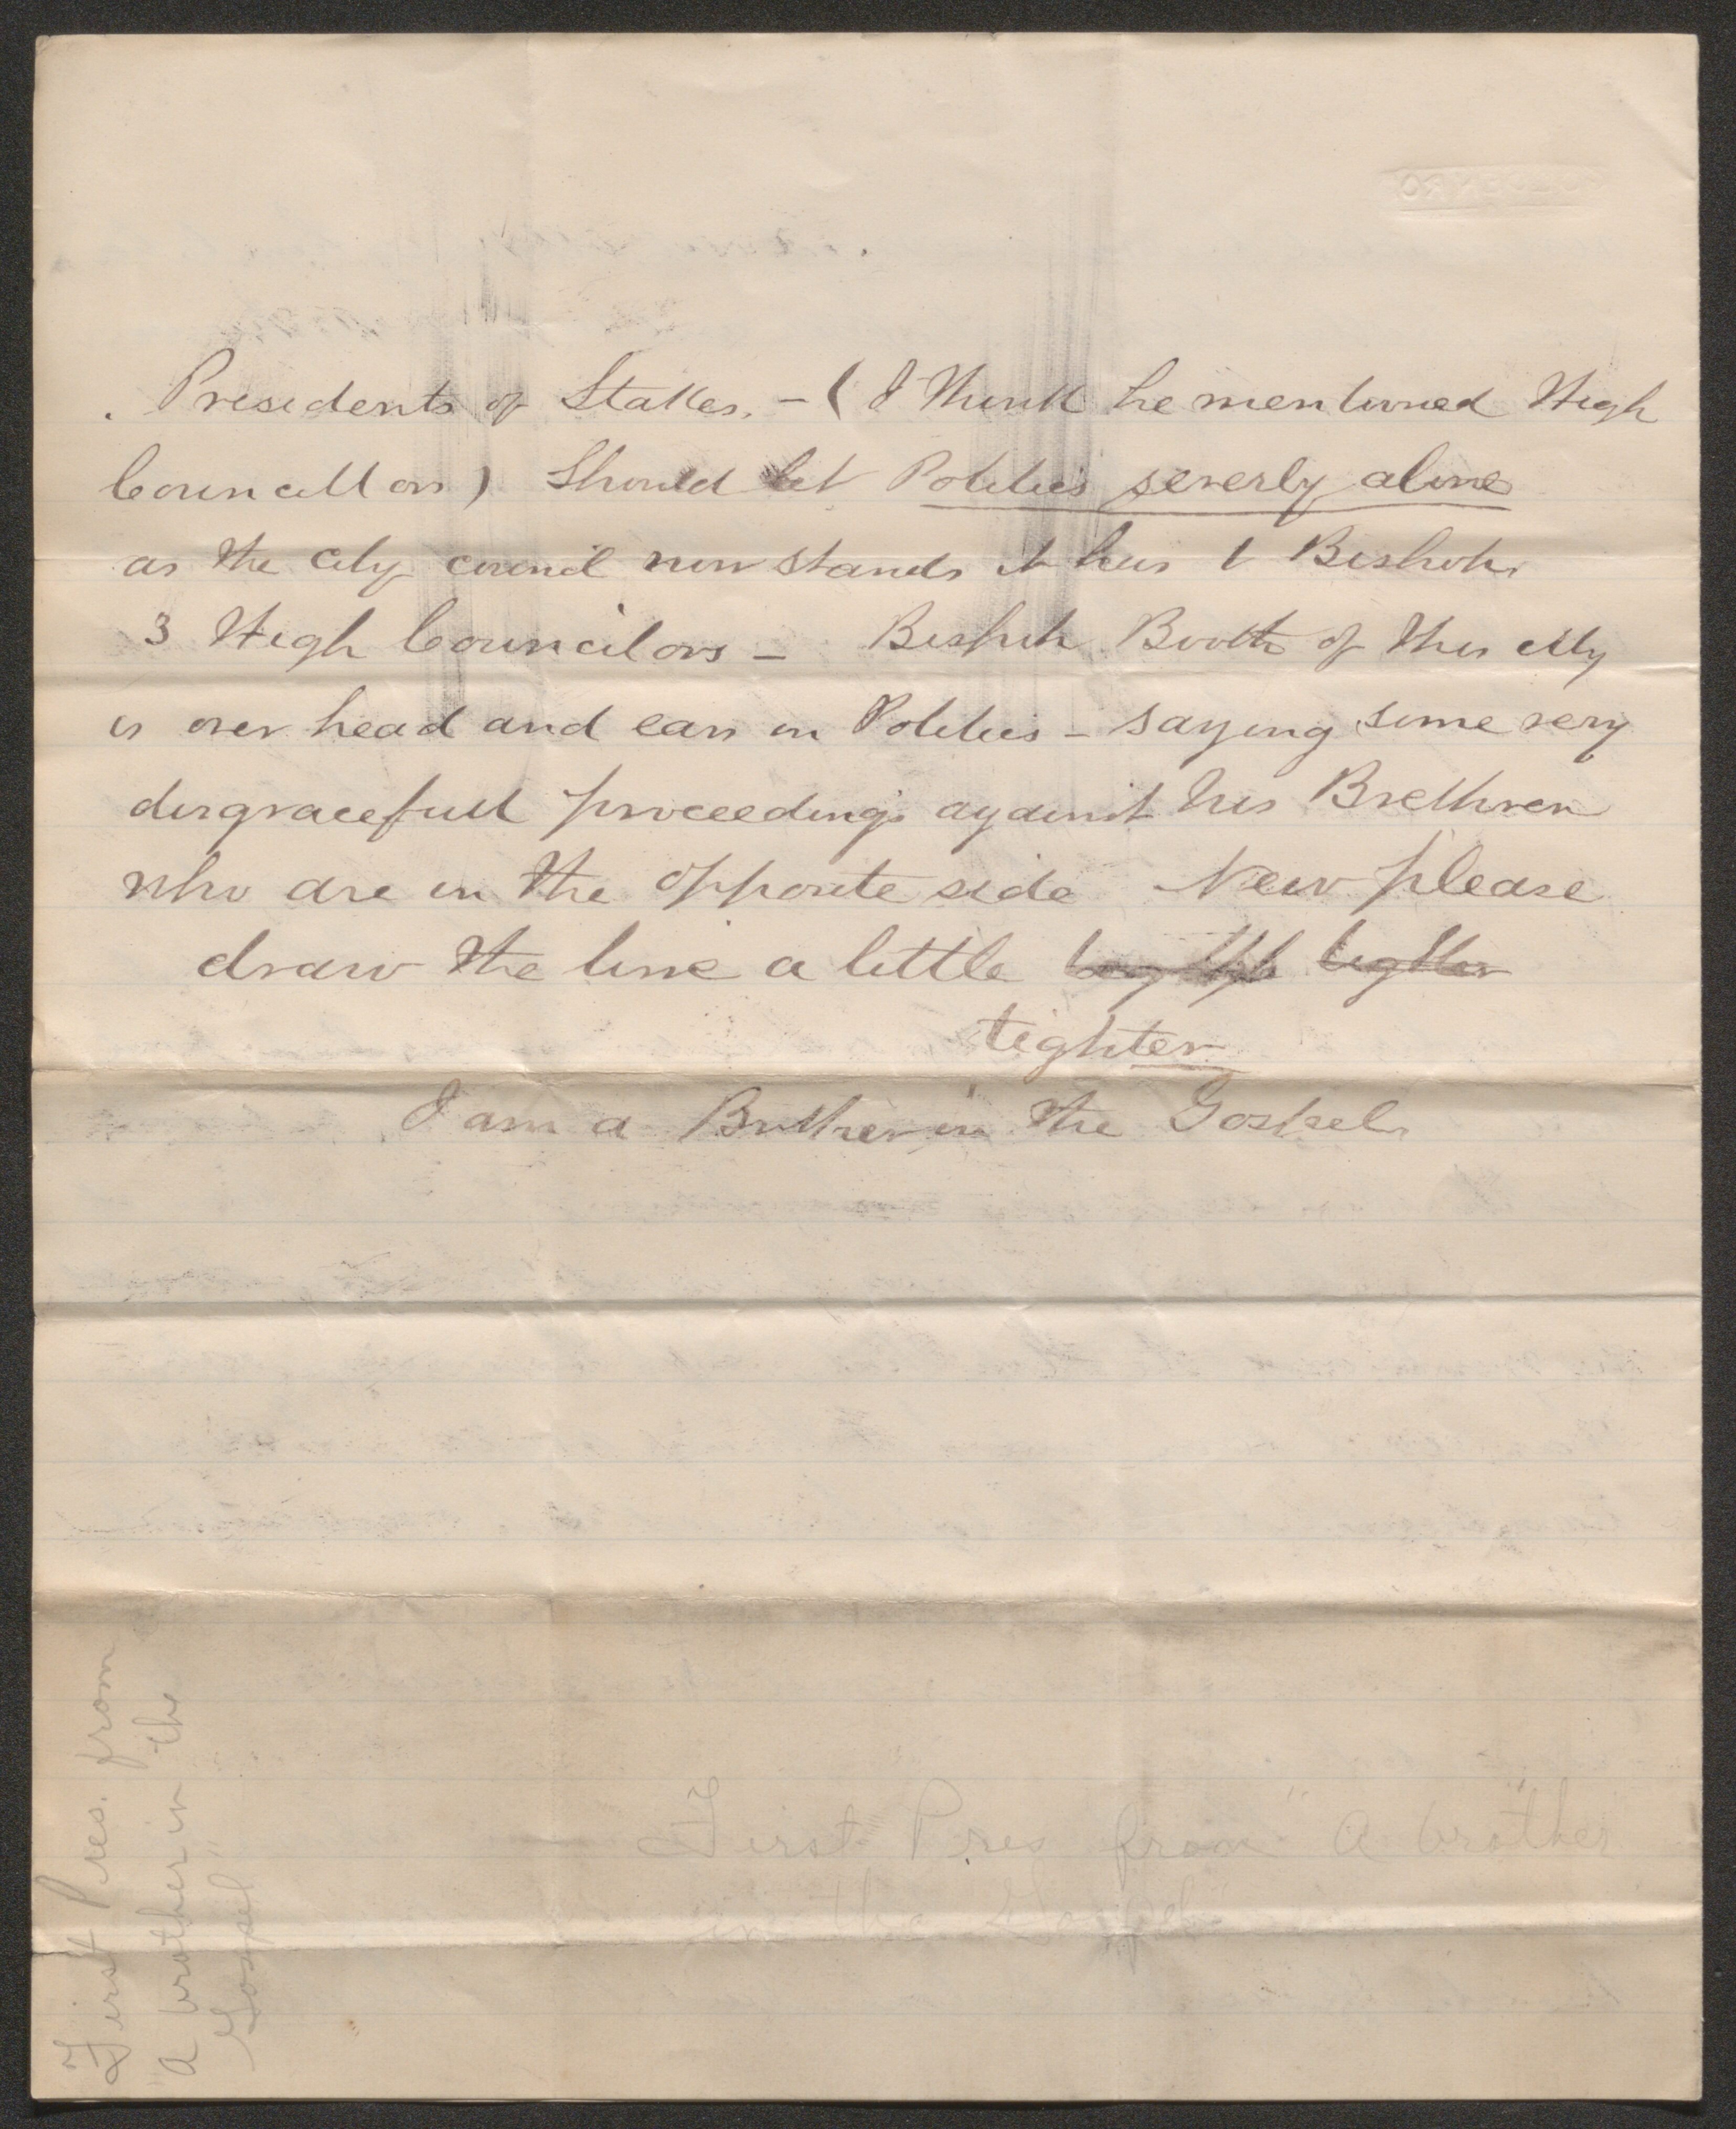 Presidents of Stakes. - (I think he mentioned High
Councellors) Should let Politics severly alone
as the city council now stands it has 1 Bishop
3 High Councilors - Bishop Booth of this city
is over head and ears in Politics - saying some very
disgracefull proceedings against his Brethren
who are in the opposite side Now please
draw the line a little tighter
tighter
I am a Brother in the Gospel
First Pres from "A brother"
in the Gospel"
First Pres. from
"A brother in the
Gospel"